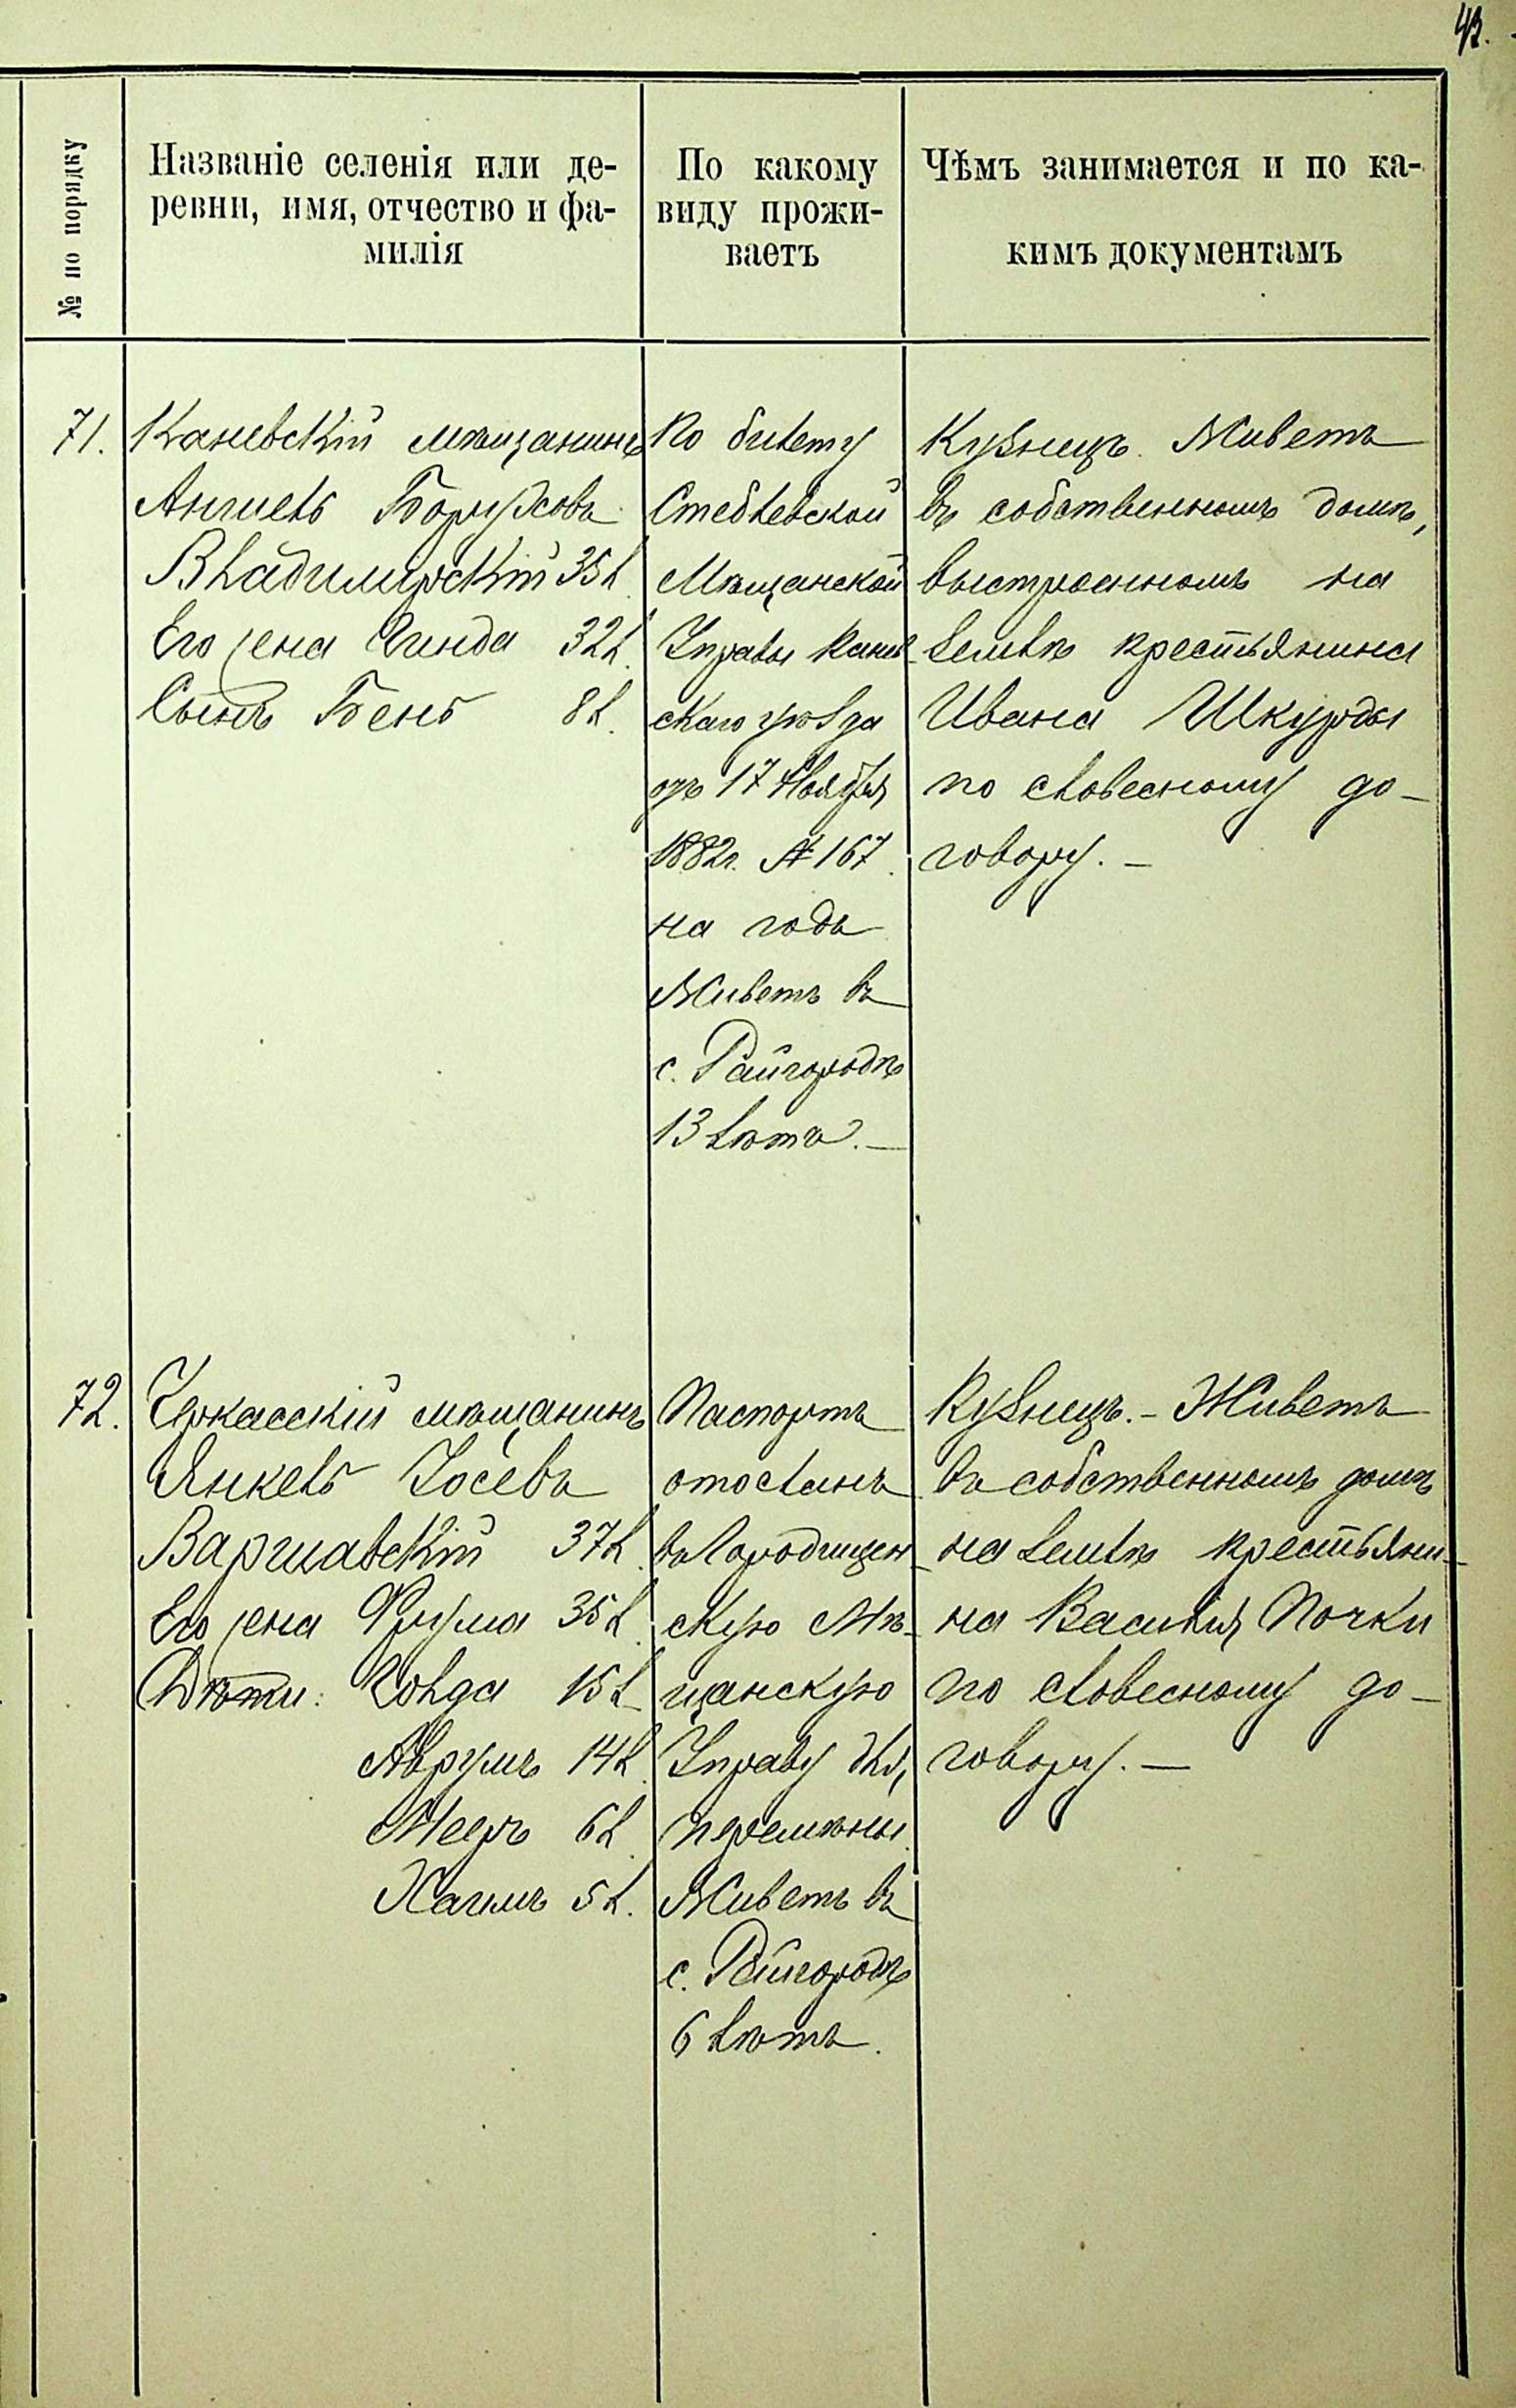 43.
№ по порядку
Названіе селенія или де-
ревни, имя, отчество и фа-
милія
По какому
виду прожи-
ваетъ
Чѣмъ занимается и по ка-
кимъ документамъ
71.
Каневскій мѣщанинъ
Аншель Борухова
Владимирскій 35 л.
Его жена Гинда 32 л.
Сынъ Бень 8 л.
По билету
Стеблевской
Мѣщанской
Управы Канев-
скаго уѣзда
отъ 17 Ноября
1882 г. № 167.
на годъ
Живетъ въ
с. Райгородѣ
13 лѣтъ. —
Кузнецъ. Живетъ
въ собственномъ домѣ,
выстроенномъ на
землѣ крестьянина
Ивана Шкурды
по словесному до-
говору. —
72.
Черкасскій мѣщанинъ
Янкель Іосевъ
Варшавскій 37 л.
Его жена Фрума 35 л.
Дѣти: Голда 15 л.
Аврумъ 14 л.
Мееръ 6 л.
Хаимъ 5 л.
Паспортъ
отосланъ
въ Городищен-
скую Мѣ-
щанскую
Управу для
перемѣны.
Живетъ въ
с. Райгородѣ
6 лѣтъ.
Кузнецъ. — Живетъ
въ собственномъ домѣ
на землѣ крестьяни-
на Василія Почки
по словесному до-
говору. —